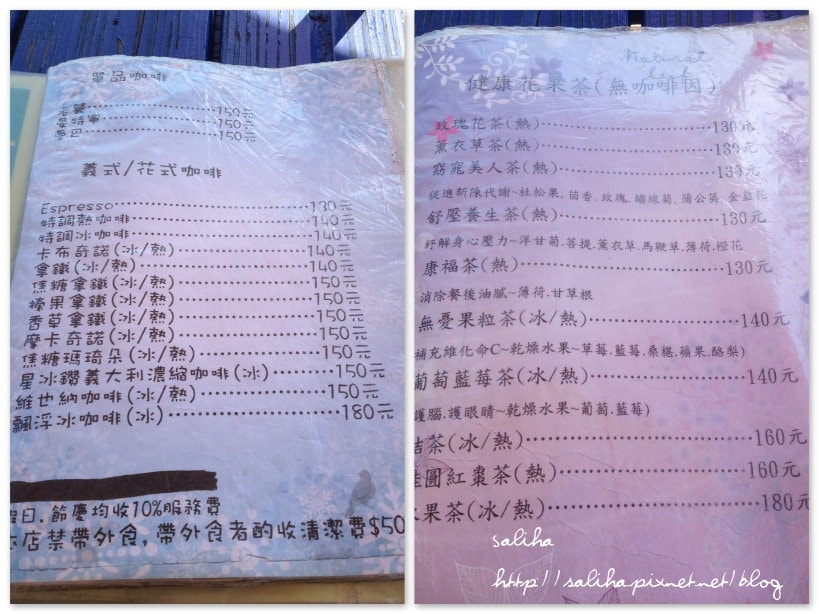 單品咖啡
150元
曼特寧 150元
150元
義式/花式咖啡
Espresso 130元
特調熱咖啡 140元
特調冰咖啡 140元
卡布奇諾(冰/熱) 140元
拿鐵(冰/熱) 140元
焦糖拿鐵(冰/熱) 150元
榛果拿鐵(冰/熱) 150元
香草拿鐵(冰/熱) 150元
摩卡奇諾(冰/熱) 150元
焦糖瑪琦朵(冰/熱) 150元
星冰鑽義大利濃縮咖啡(冰) 150元
維也納咖啡(冰/熱) 150元
飄浮冰咖啡(冰) 180元
假日.節慶均收10%服務費
本店禁帶外食,帶外食者酌收清潔費$50
Natural
健康花果茶(無咖啡因)
玫瑰花茶(熱) 130元
薰衣草茶(熱) 130元
窈窕美人茶(熱) 130元
促進新陳代謝~杜松果.茴香.玫瑰.繡線菊.蒲公英.金盞花
舒壓養生茶(熱) 130元
紓解身心壓力~洋甘菊.菩提.薰衣草.馬鞭草.薄荷.橙花
康福茶(熱) 130元
消除餐後油膩~薄荷.甘草根
無憂果粒茶(冰/熱) 140元
補充維化命C~乾燥水果~草莓.藍莓.桑椹.蘋果.酪梨)
葡萄藍莓茶(冰/熱) 140元
護腦.護眼睛~乾燥水果~葡萄.藍莓)
桔茶(冰/熱) 160元
桂圓紅棗茶(熱) 160元
水果茶(冰/熱) 180元
saliha
http://saliha.pixnet.net/blog